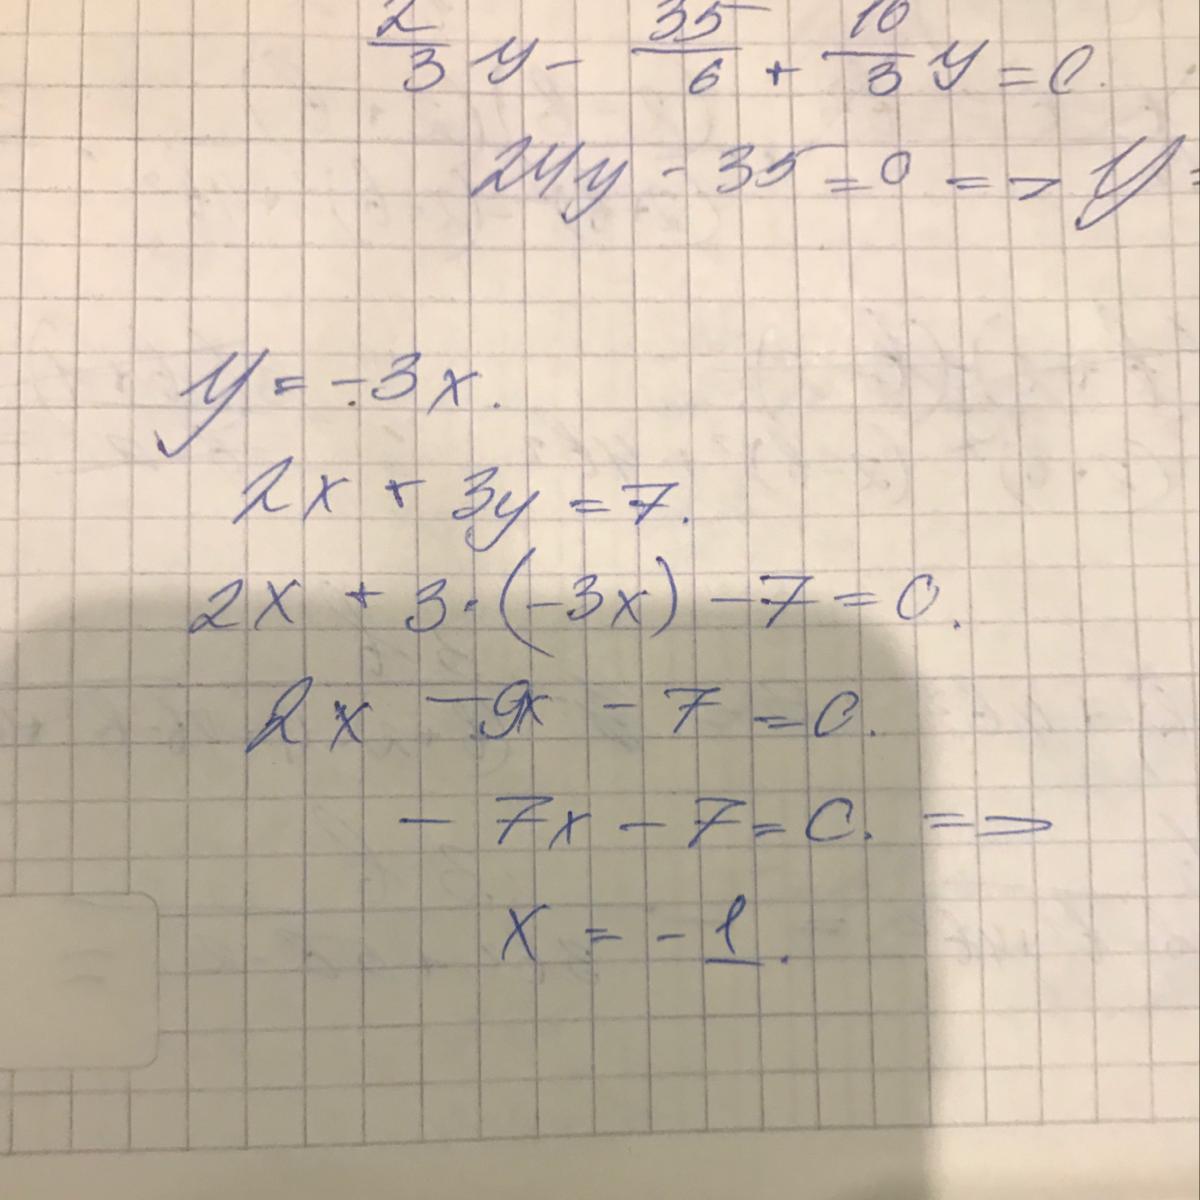 2/3 y - 35/6 + 10/3 y = 0.
24y - 35 = 0 => y =
y = -3x.
2x + 3y = 7.
2x + 3·(-3x) - 7 = 0.
2x - 9x - 7 = 0.
- 7x - 7 = 0. =>
x = - 1.